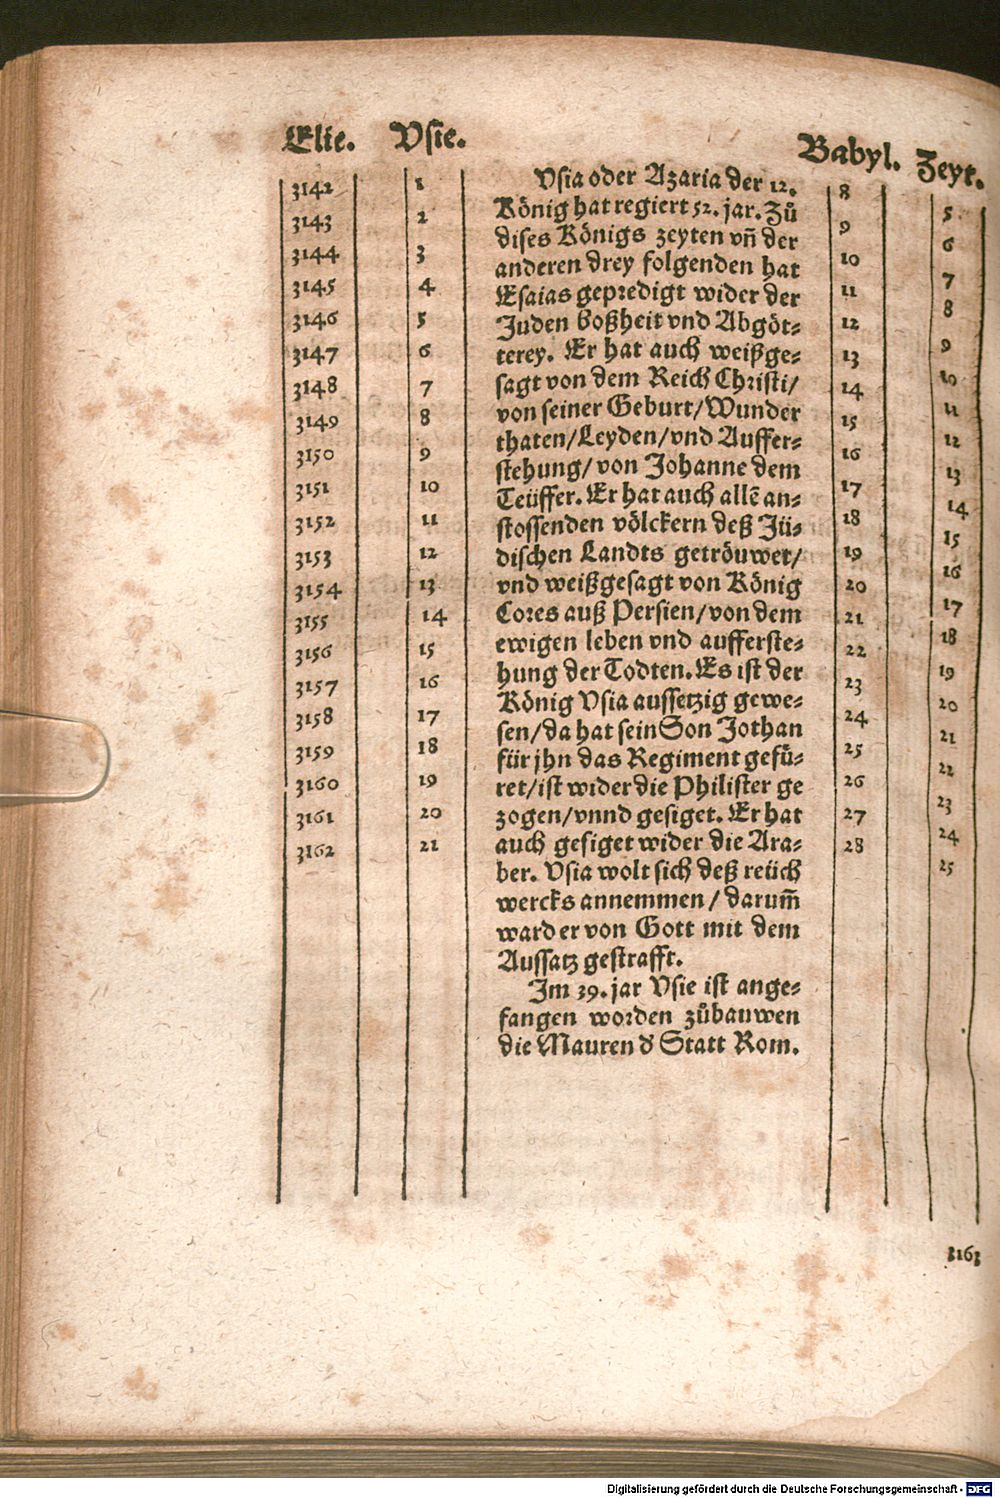 Elie. Vsie. Babyl. Zeyt.
3142 1 8 5
3143 2 9 6
3144 3 10 7
3145 4 11 8
3146 5 12 9
3147 6 13 10
3148 7 14 11
3149 8 15 12
3150 9 16 13
3151 10 17 14
3152 11 18 15
3153 12 19 16
3154 13 20 17
3155 14 21 18
3156 15 22 19
3157 16 23 20
3158 17 24 21
3159 18 25 22
3160 19 26 23
3161 20 27 24
3162 21 28 25
Vsia oder Azaria der 12.
König hat regiert 52. jar. Zů
dises Königs zeyten vñ der
anderen drey folgenden hat
Esaias gepredigt wider der
Juden boßheit vnd Abgöt⸗
terey. Er hat auch weißge⸗
sagt von dem Reich Christi/
von seiner Geburt/Wunder
thaten/Leyden/vnd Auffer⸗
stehung/von Johanne dem
Teüffer. Er hat auch allē an⸗
stossenden völckern deß Jü⸗
dischen Landts getröuwet/
vnd weißgesagt von König
Cores auß Persien/von dem
ewigen leben vnd aufferste⸗
hung der Todten. Es ist der
König Vsia aussetzig gewe⸗
sen/da hat sein Son Jothan
für jhn das Regiment gefü⸗
ret/ist wider die Philister ge
zogen/vnnd gesiget. Er hat
auch gesiget wider die Ara⸗
ber. Vsia wolt sich deß reüch
wercks annemmen/darum̃
ward er von Gott mit dem
Aussatz gestrafft.
Im 39. jar Vsie ist ange⸗
fangen worden zůbauwen
die Mauren d' Statt Rom.
3163
Digitalisierung gefördert durch die Deutsche Forschungsgemeinschaft - DFG